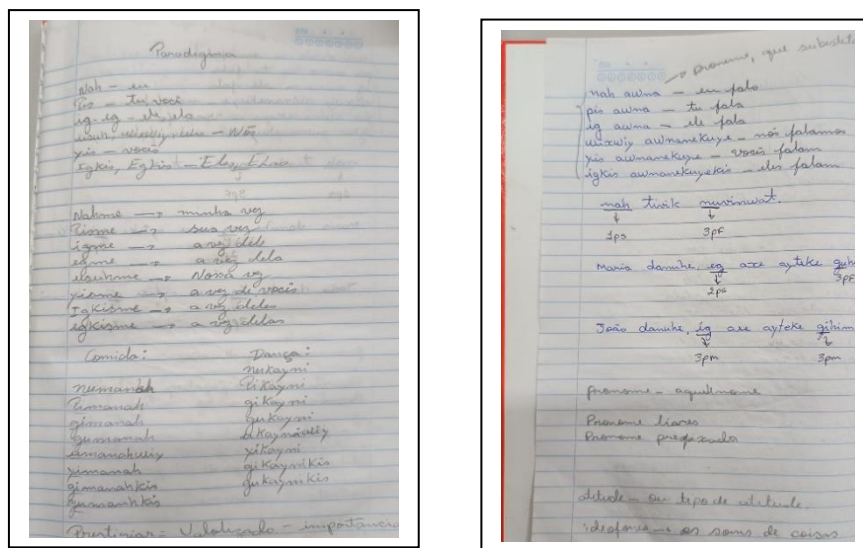 Paradigma
Nah - eu
Pis - tu você
ig, eg - ele, ela
usuh, wixwiy, - Nós
yis - vocês
Igkis, Egkis - Eles, Elas
Nahme → minha vez
Pisme → sua vez
igme → a vez dele
egme → a vez dela
usuhme → Nossa vez
yisme → a vez de vocês
Igkisme → a vez deles
egkisme → a vez delas
Comida:
numanah
Pimanah
gimanah
gumanah
amanahwiy
yimanah
gimanahkis
gumanhkis
Dança:
nukayni
Pikayni
gikayni
gukayni
akayniwiy
yikayni
gikaynikis
gukaynikis
Prestigiar = Valorizado - importancia
→ pronome, que
nah awna - eu falo
pis awna - tu fala
ig awna - ele fala
wixwiy awnanekuye - nós falamos
yis awnanekuye - vocês falam
igkis awnanekuyekis - eles falam
nah tivik nuvinwat.
1ps 3pf
Maria danuhe, eg axe ayteke
2ps 3pf
João danuhe, ig axe ayteke gihim
3pm 3pm
pronome - aquilnome
Pronome livres
Pronome prefixado
atitude - ou tipo de atitude.
ideofonia - os sons de coisas